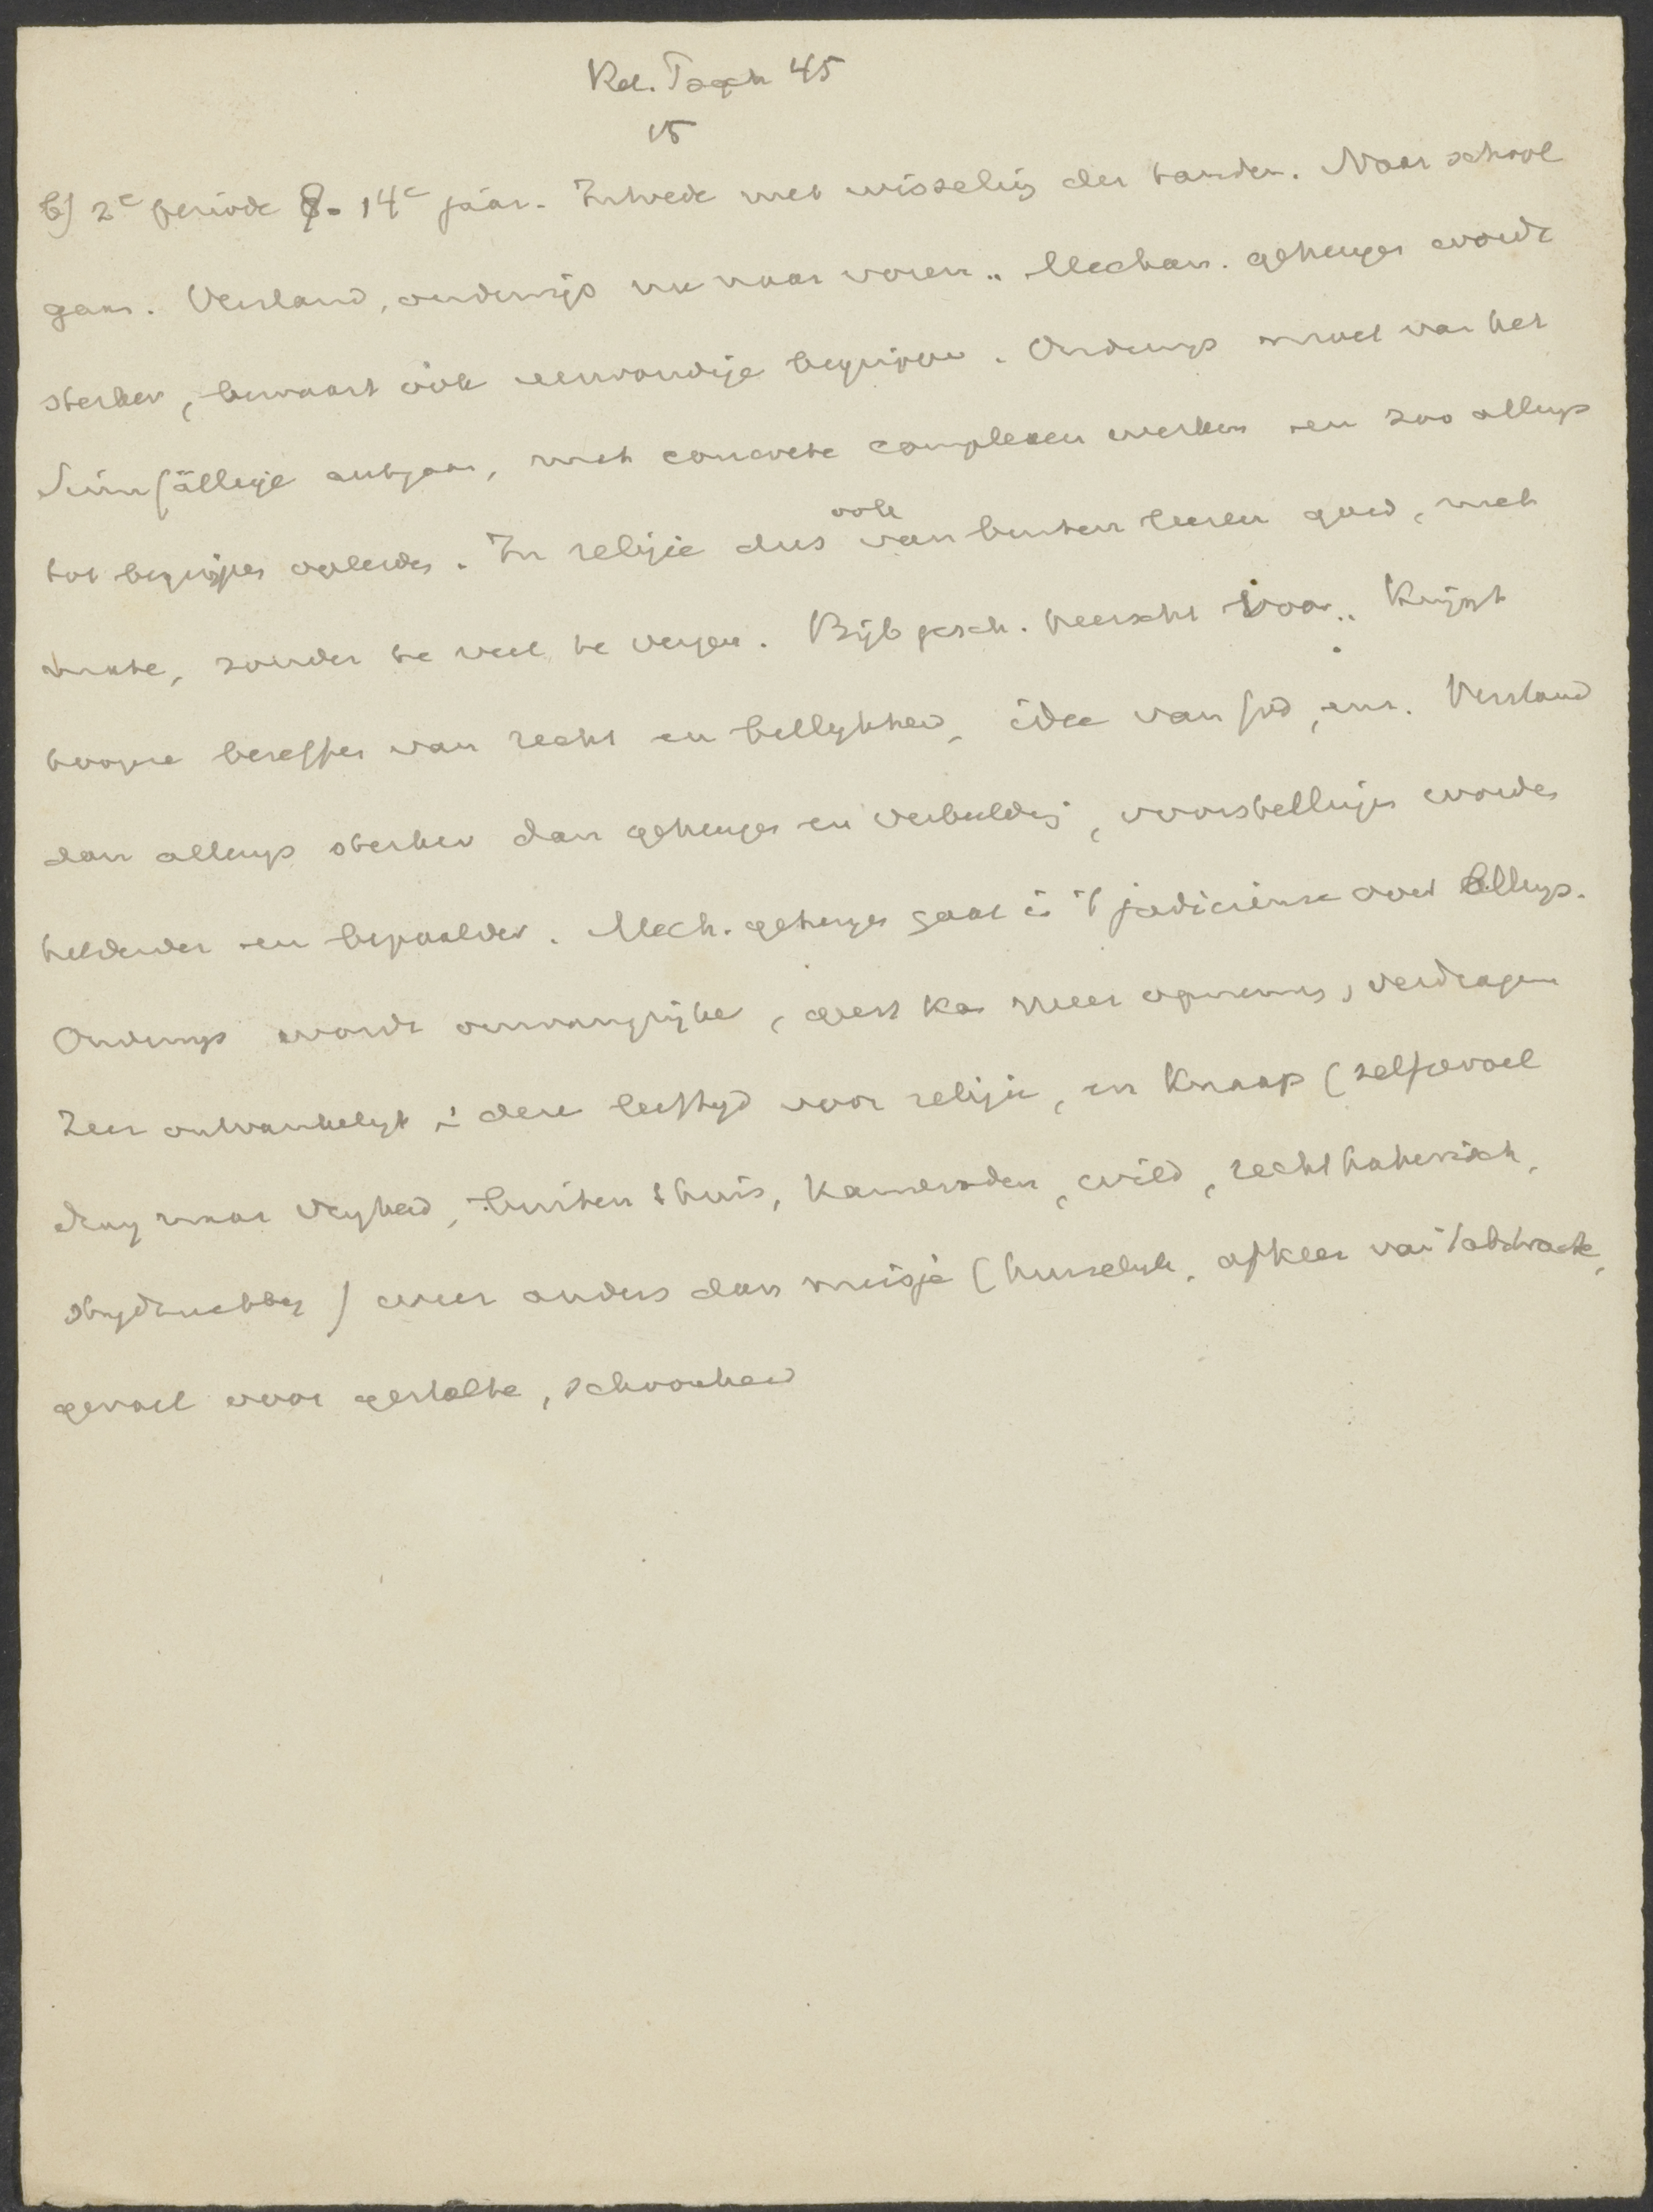 Rel. Psych 45
15
b) 2e periode 8-14e jaar. Intrede met wisseling der tanden. Naar school
gaan. Verstand, onderwijs nu naar voren. Mechan. geheugen wordt
sterker, bewaart ook eenvoudige begrippen. Onderwijs moet van het
Sinnfällige uitgaan, met concrete complexen werken en zoo allengs
tot begrippen opleiden. In religie dus ook van buiten leeren goed, met
mate, zonder te veel te vergen. Bijb gesch. heerscht voor. Krijgt
hoogere beseffen van recht en billykheid, idee van God, enz. Verstand
dan allengs sterker dan geheugen en verbeelding, voorstellingen worden
helderder en bepaalder. Mech. geheugen gaat in 't judicieuse over allengs.
Onderwys wordt omvangrijker, geest kan meer opnemen, verdragen
Zeer ontvankelyk in deze leeftyd voor religie, en Knaap (zelfgevoel
drang naar vryheid, buiten shuis, Kameraden, wild, rechthaberisch,
strydzuchtig) weer anders dan meisje (huiselyk, afkeer van 't abstracte,
gevoel voor gestalte, schoonheid